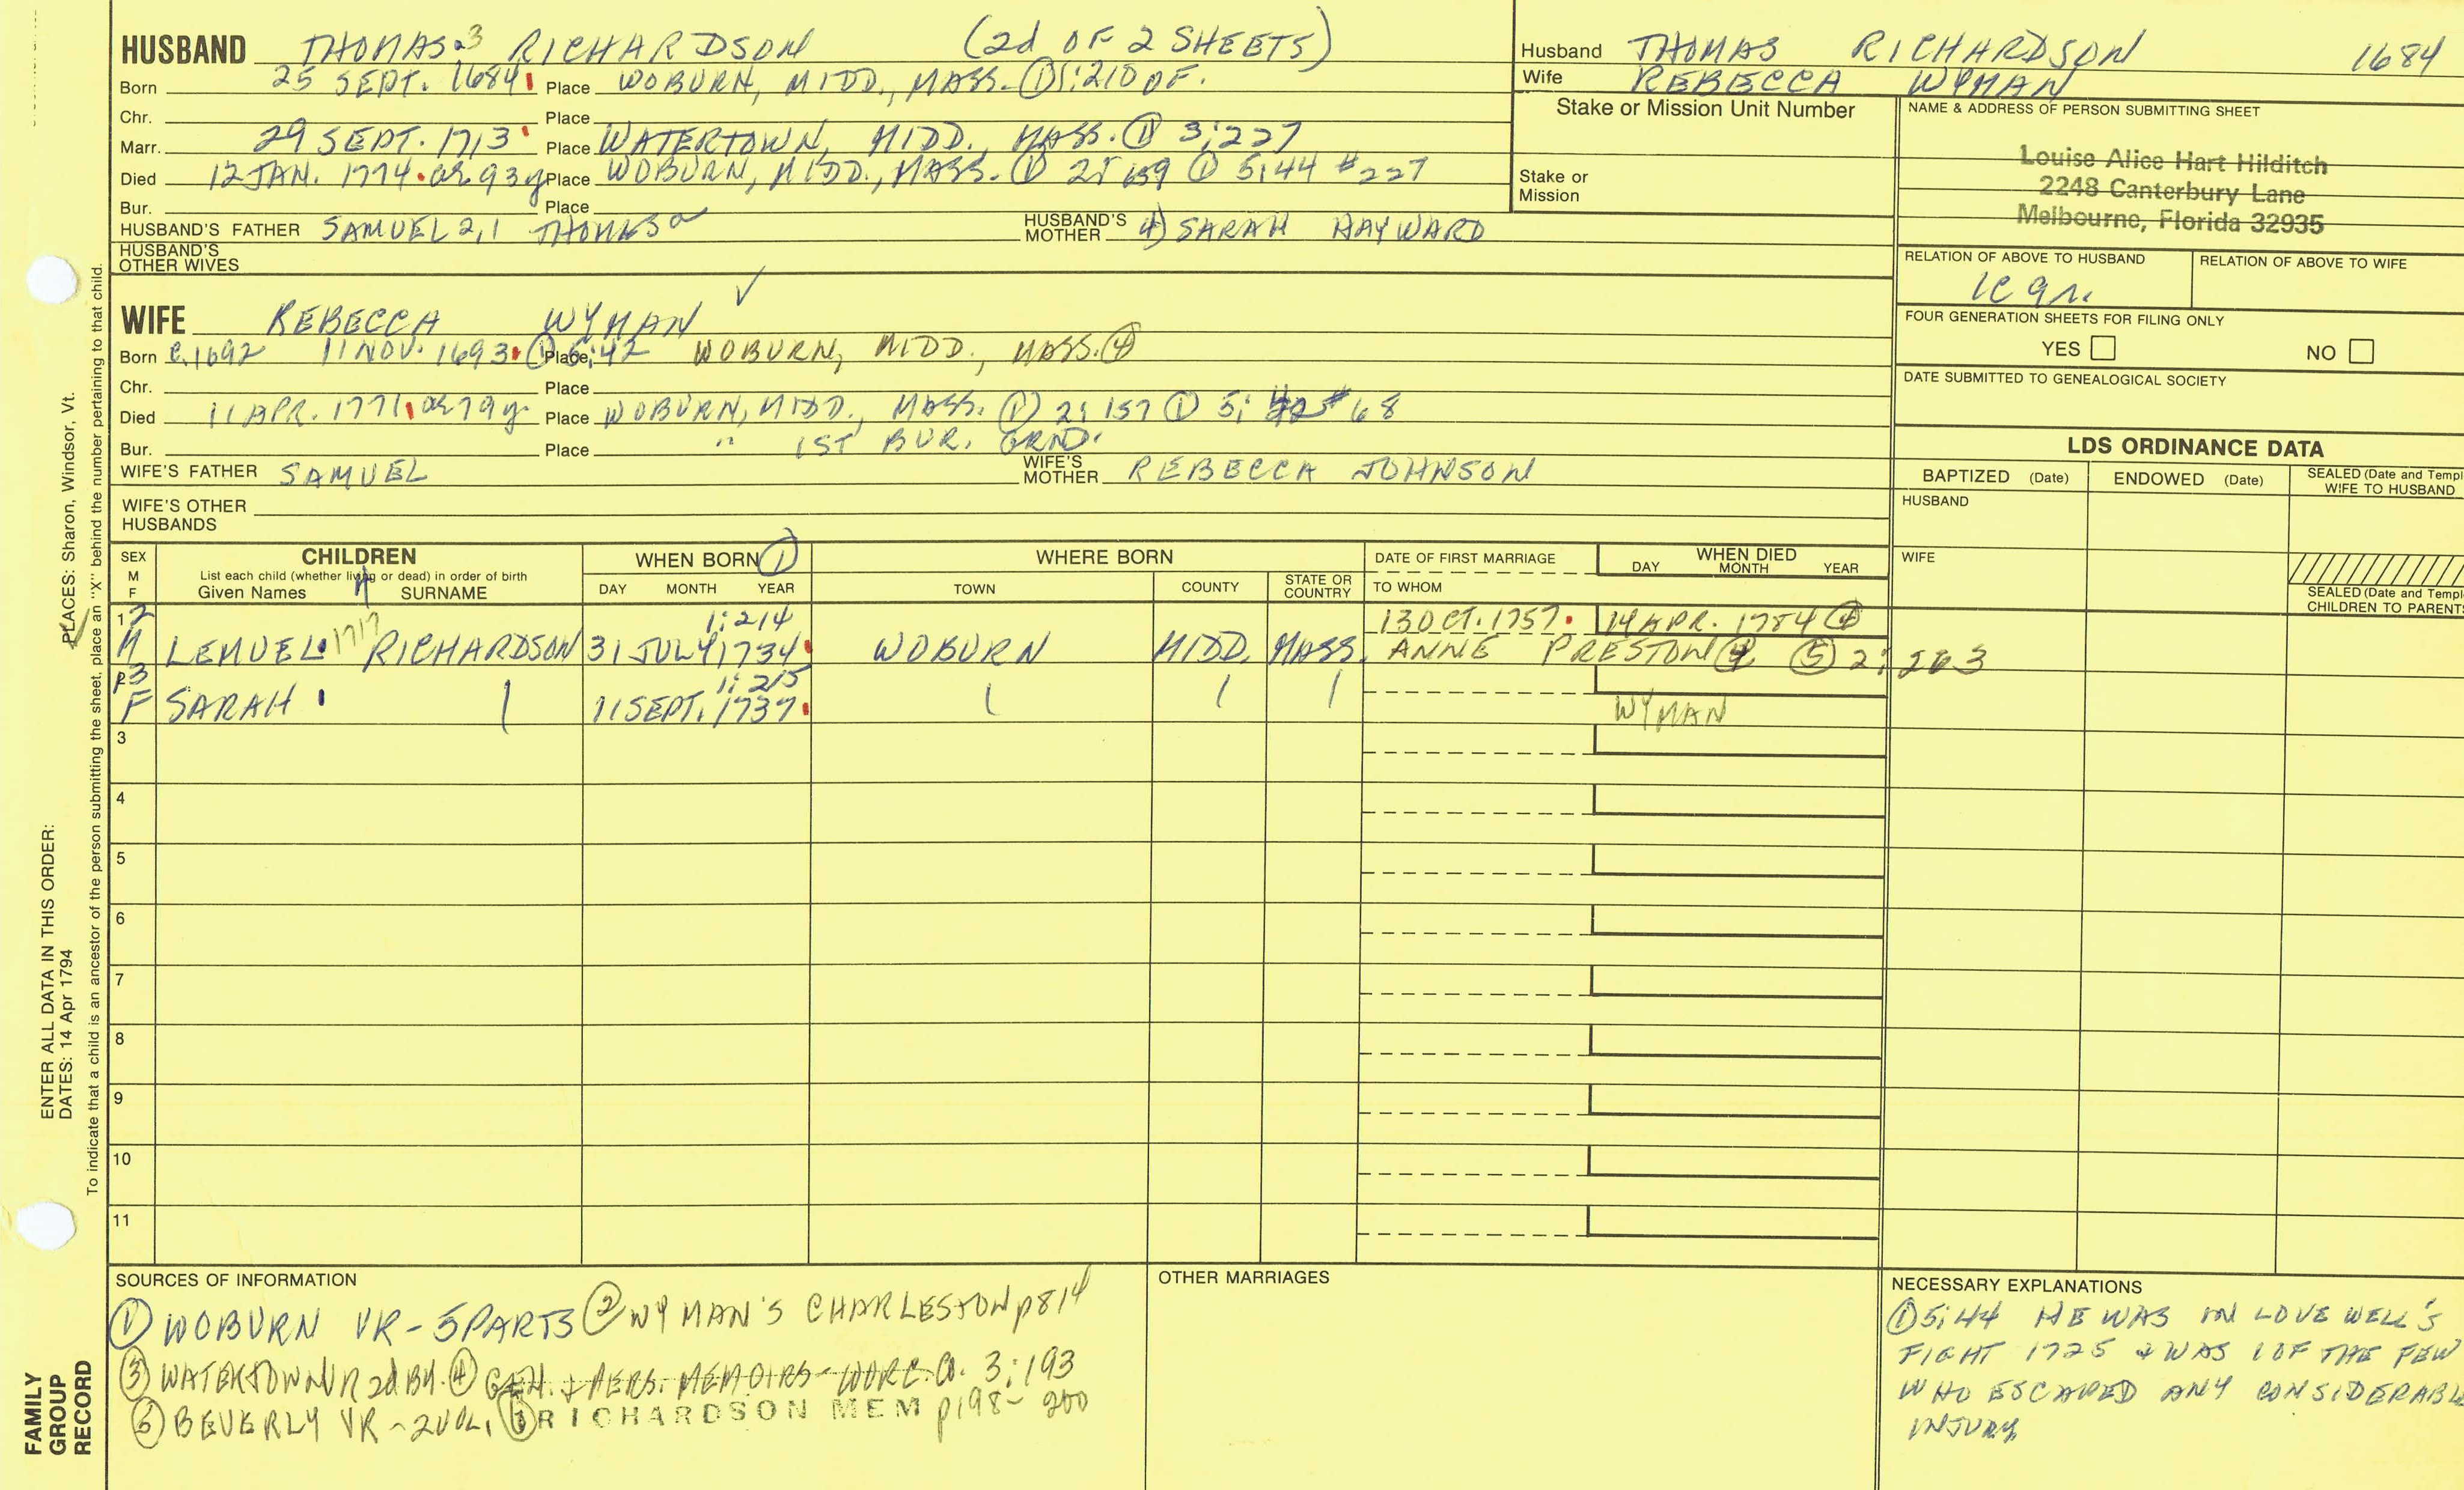 HUSBAND THOMAS 3 RICHARDSON (2d OF 2 SHEETS)
Born 25 SEPT. 1684 Place WOBURN, MIDD., MASS. ① 1:210 OF.
Chr. Place
Marr. 29 SEPT. 1713 Place WATERTOWN, MIDD., MASS. ① 3:227
Died 12 JAN. 1774. ae 93y Place WOBURN, MIDD., MASS. ① 2: 159 ① 5:44 #227
Bur. Place
HUSBAND'S FATHER SAMUEL 2,1 THOMAS
HUSBAND'S MOTHER 4) SARAH HAYWARD
HUSBAND'S OTHER WIVES
WIFE REBECCA WYMAN ✓
Born c.1692 11 NOV. 1693. ① Place 5:42 WOBURN, MIDD., MASS. ④
Chr. Place
Died 11 APR. 1771, ae 79y. Place WOBURN, MIDD., MASS. ① 2: 157 ① 5: #68
Bur. Place " 1ST BUR. GRND.
WIFE'S FATHER SAMUEL
WIFE'S MOTHER REBECCA JOHNSON
WIFE'S OTHER HUSBANDS
Husband THOMAS RICHARDSON 1684
Wife REBECCA WYMAN
Stake or Mission Unit Number
Stake or Mission
NAME & ADDRESS OF PERSON SUBMITTING SHEET
Louise Alice Hart Hilditch
2248 Canterbury Lane
Melbourne, Florida 32935
RELATION OF ABOVE TO HUSBAND
RELATION OF ABOVE TO WIFE
FOUR GENERATION SHEETS FOR FILING ONLY
YES NO
DATE SUBMITTED TO GENEALOGICAL SOCIETY
LDS ORDINANCE DATA
BAPTIZED (Date) ENDOWED (Date) SEALED (Date and Templ
WIFE TO HUSBAND
HUSBAND
WIFE
SEALED (Date and Templ
CHILDREN TO PARENTS
SEX M F
CHILDREN
List each child (whether living or dead) in order of birth
Given Names SURNAME
WHEN BORN ①
DAY MONTH YEAR
WHERE BORN
TOWN COUNTY STATE OR COUNTRY
DATE OF FIRST MARRIAGE
TO WHOM
WHEN DIED
DAY MONTH YEAR
1 2 1:214 13 OCT. 1757. 14 APR. 1784 ④
M LEMUEL 1717 RICHARDSON 31 JULY 1734 WOBURN MIDD. MASS. ANNE PRESTON ④ ⑤ 2: 263
2 3 1:215
F SARAH 11 SEPT. 1737 WYMAN
3
4
5
6
7
8
9
10
11
SOURCES OF INFORMATION
① WOBURN VR - 5 PARTS ② WYMAN'S CHARLESTOWN p814
③ WATERTOWN VR 2d BK. ④ GEN. + PERS. MEMOIRS - WORC. CO. 3:193
⑤ BEVERLY VR - 2 VOL. ⑥ RICHARDSON MEM p198- 200
OTHER MARRIAGES
NECESSARY EXPLANATIONS
① 5:44 HE WAS IN LOVEWELL'S
FIGHT 1725 & WAS 1 OF THE FEW
WHO ESCAPED ANY CONSIDERABLE
INJURY
ENTER ALL DATA IN THIS ORDER:
DATES: 14 Apr 1794
PLACES: Sharon, Windsor, Vt.
To indicate that a child is an ancestor of the person submitting the sheet, place an "X" behind the number pertaining to that child.
FAMILY
GROUP
RECORD